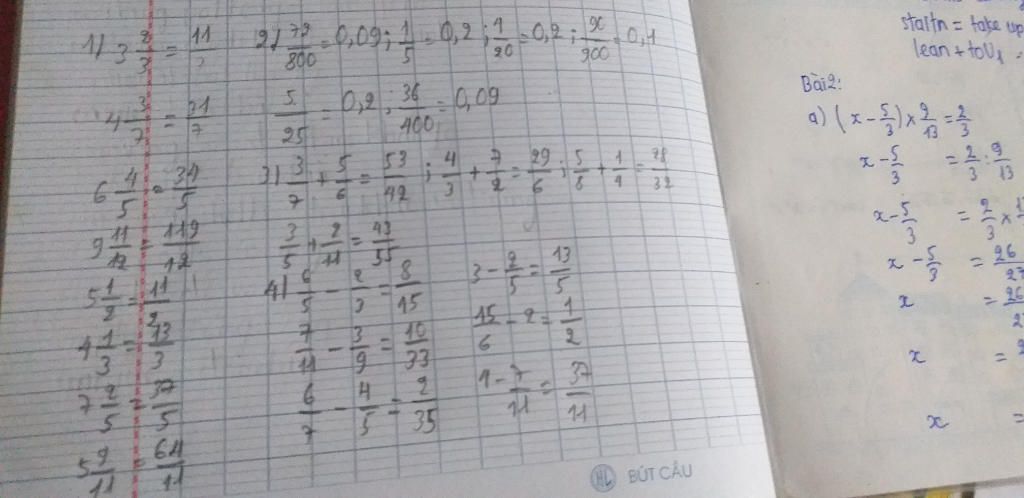 1) 3 2/3 = 11/3
4 3/7 = 31/7
6 4/5 = 34/5
9 11/12 = 119/12
5 1/2 = 11/2
4 1/3 = 13/3
7 2/5 = 37/5
5 9/11 = 64/11
2) 72/800 = 0,09 ; 1/5 = 0,2 ; 1/20 = 0,2 ; 90/900 = 0,1
5/25 = 0,2 ; 36/400 = 0,09
3) 3/7 + 5/6 = 53/42 ; 4/3 + 7/2 = 29/6 ; 5/8 + 1/4 = 28/32
3/5 + 2/11 = 43/55
4) 6/5 - 2/3 = 8/15
3 - 2/5 = 13/5
7/11 - 3/9 = 10/33
15/6 - 2 = 1/2
6/7 - 4/5 = 2/35
4 - 7/11 = 37/11
BÚT CÂU
= take up
lean + toV1
Bài 2:
a) (x - 5/3) x 9/13 = 2/3
x - 5/3 = 2/3 : 9/13
x - 5/3 = 2/3 x
x - 5/3 = 26/27
x =
x =
x =